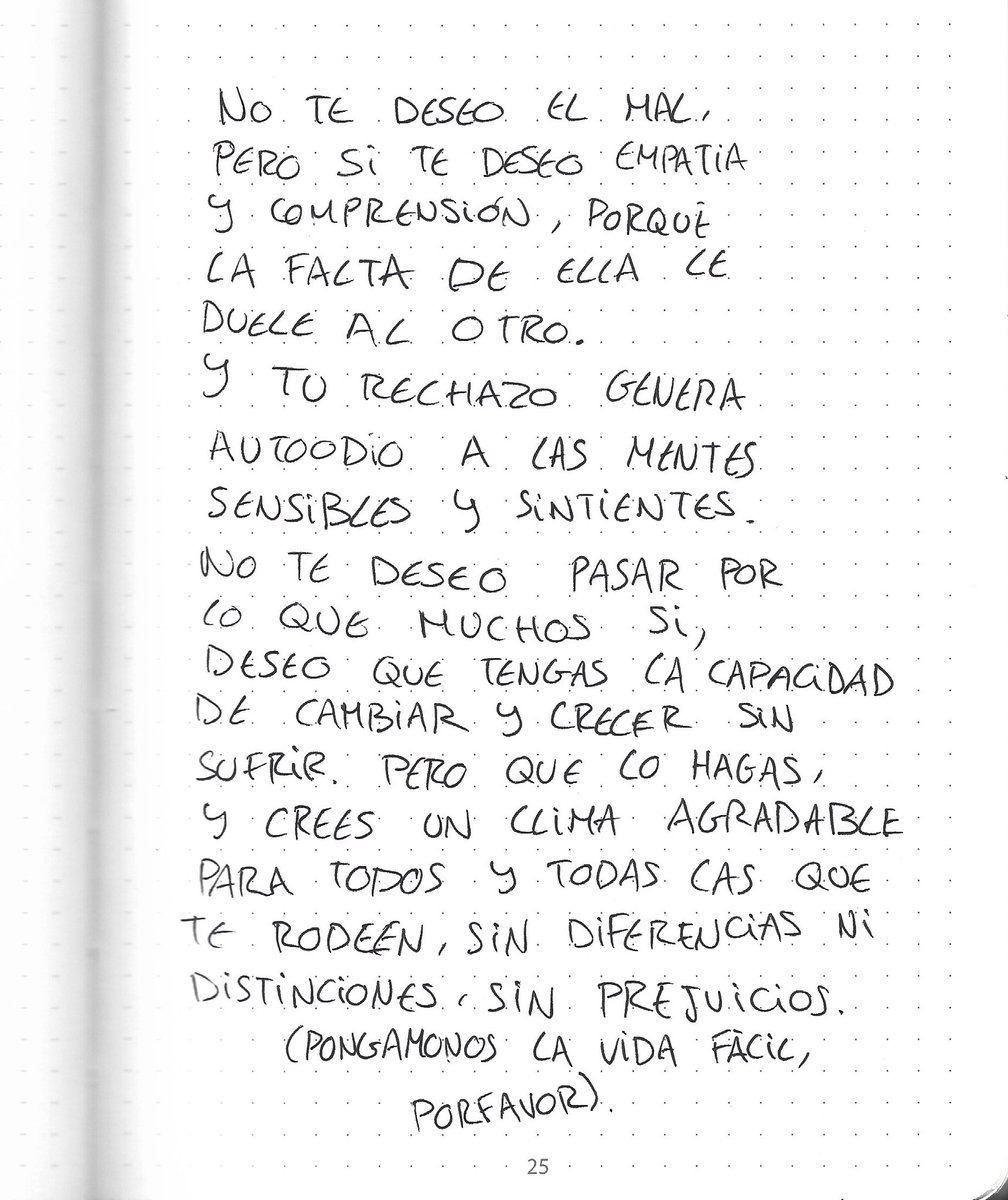 NO TE DESEO EL MAL,
PERO SI TE DESEO EMPATIA
Y COMPRENSIÓN, PORQUE
LA FALTA DE ELLA LE
DUELE AL OTRO.
Y TU RECHAZO GENERA
AUTOODIO A LAS MENTES
SENSIBLES Y SINTIENTES.
NO TE DESEO PASAR POR
LO QUE MUCHOS SI,
DESEO QUE TENGAS LA CAPACIDAD
DE CAMBIAR Y CRECER SIN
SUFRIR. PERO QUE LO HAGAS,
Y CREES UN CLIMA AGRADABLE
PARA TODOS Y TODAS LAS QUE
TE RODEEN, SIN DIFERENCIAS NI
DISTINCIONES, SIN PREJUICIOS.
(PONGAMONOS LA VIDA FÀCIL,
PORFAVOR).
25